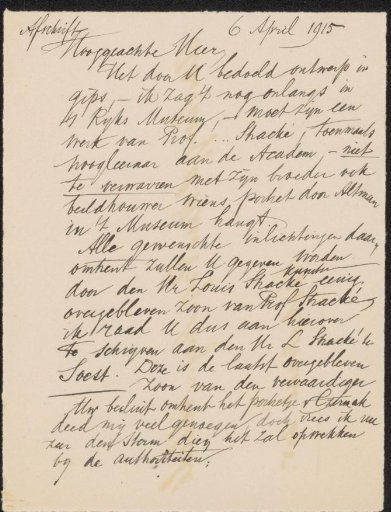 Afschrift
6 April 1915
Hooggeachte Heer,
Het door U bedoeld ontwerp in
gips, – ik zag 't nog onlangs in
't Ryks Museum, – moet zyn een
werk van Prof. ... Stracké, toenmaals
hoogleeraar aan de Academ, – niet
te verwarren met zyn broeder ook
beeldhouwer wiens portret door Altman
in 't Museum hangt.
Alle gewenschte inlichtingen daar
omtrent zullen U gegeven kunnen worden
door den Hr Louis Stracké eenig
overgebleven zoon van Prof Stracké,
ik raad U dus aan hierover
te schryven aan den Hr L Stracké te
Soest. Deze is de laatst overgebleven
zoon van den vervaardiger
Uw besluit omtrent het portretje
deed my veel genoegen, doch vrees ik nu
zur den storm dien het zal opwekken
by de authoriteiten.